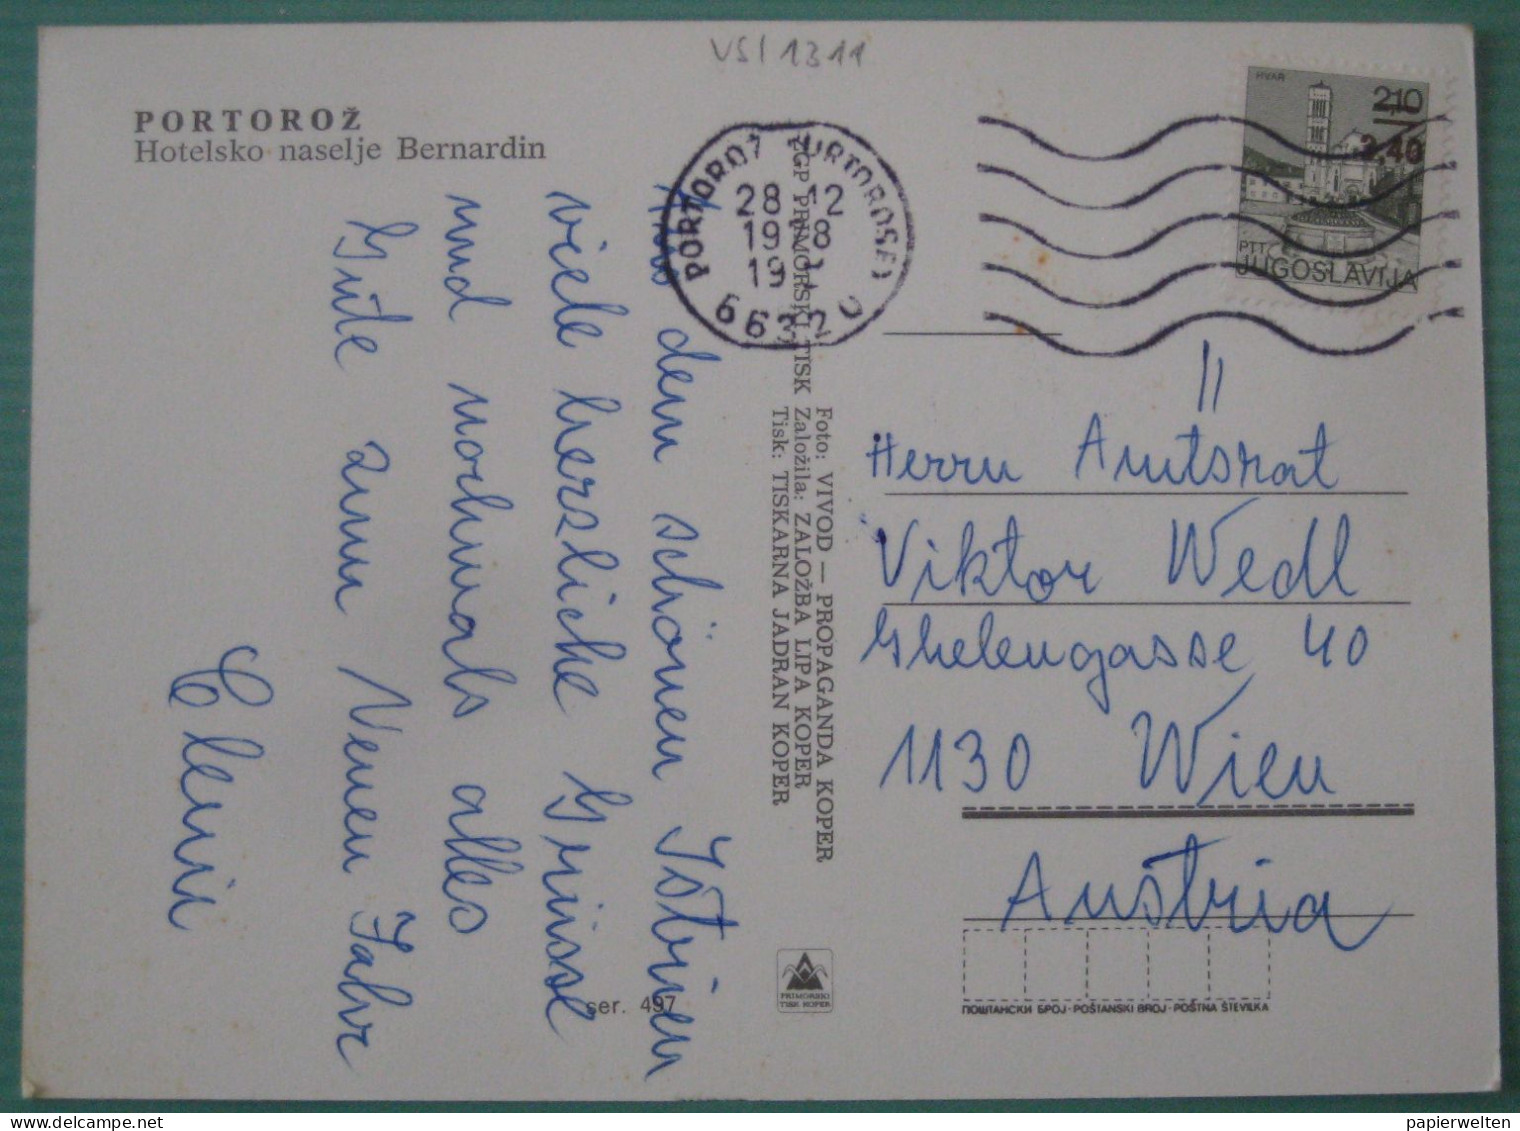 VSI 1311
PORTOROŽ
Hotelsko naselje Bernardin
Aus dem schönen Istrien
viele herzliche Grüsse
und nochmals alles
Gute zum Neuen Jahr
Cleni
PORTOROŽ PORTOROSE)
28.12
19
19
66320
HVAR
210
3,40
PTT
JUGOSLAVIJA
Foto: VIVOD — PROPAGANDA KOPER
PGP PRIMORSKI TISK Založila: ZALOŽBA LIPA KOPER
Tisk: TISKARNA JADRAN KOPER
Herrn Amtsrat
Viktor Wedl
Ghelengasse 40
1130 Wien
Austria
ser. 497
PRIMORSKI
TISK KOPER
ПОШТАНСКИ БРОЈ · POŠTANSKI BROJ · POŠTNA ŠTEVILKA
papierwelten